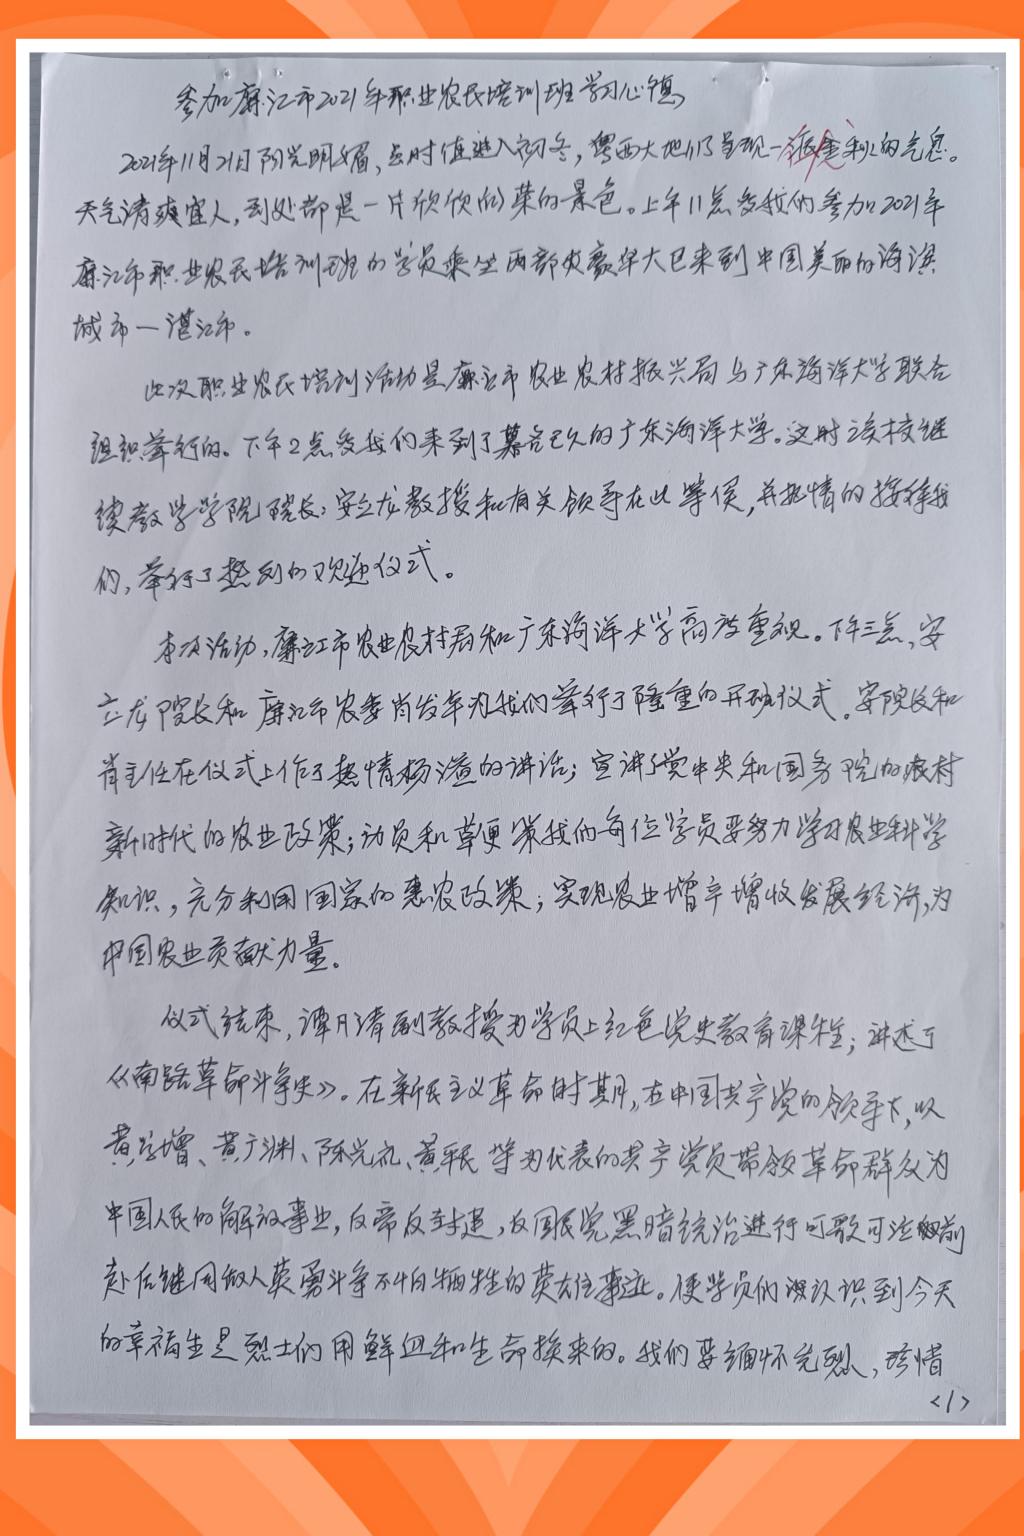 参加廉江市2021年职业农民培训班学习心德
2021年11月21日阳光明媚,虽时值进入初冬,粤西大地仍呈现一派金秋的气息。
天气清爽宜人,到处都是一片欣欣向荣的景色。上午11点多我们参加2021年
廉江市职业农民培训班的学员乘坐两部大豪华大巴来到中国美丽的海滨
城市—湛江市。
此次职业农民培训活动是廉江市农业农村振兴局与广东海洋大学联合
组织举行的。下午2点多我们来到了慕名已久的广东海洋大学。这时该校继
续教学学院院长:安立龙教授和有关领导在此等侯,并热情的接待我
们,举行了热烈的欢迎仪式。
本次活动,廉江市农业农村局和广东海洋大学高度重视。下午三点,安
立龙院长和廉江市农委肖发年为我们举行了隆重的开班仪式。安院长和
肖主任在仪式上作了热情杨溢的讲话;宣讲了党中央和国务院的农村
新时代的农业政策;动员和草更策我们每位学员要努力学习农业科学
知识,充分利用国家的惠农政策;实现农业增产增收发展经济,为
中国农业贡献力量。
仪式结束,谭月清副教授为学员上红色党史教育课程;讲述了
《南路革命斗争史》。在新民主义革命时期,在中国共产党的领导下,以
黄学增、黄广渊、陈光礼、黄平民等为代表的共产党员带领革命群众为
中国人民的解放事业,反帝反封建,反国民党黑暗统治进行可歌可泣的前
赴后继同敌人英勇斗争不怕牺牲的英雄事迹。使学员们认识到今天
的幸福生是烈士们用鲜血和生命换来的。我们要缅怀先烈,珍惜
<1>